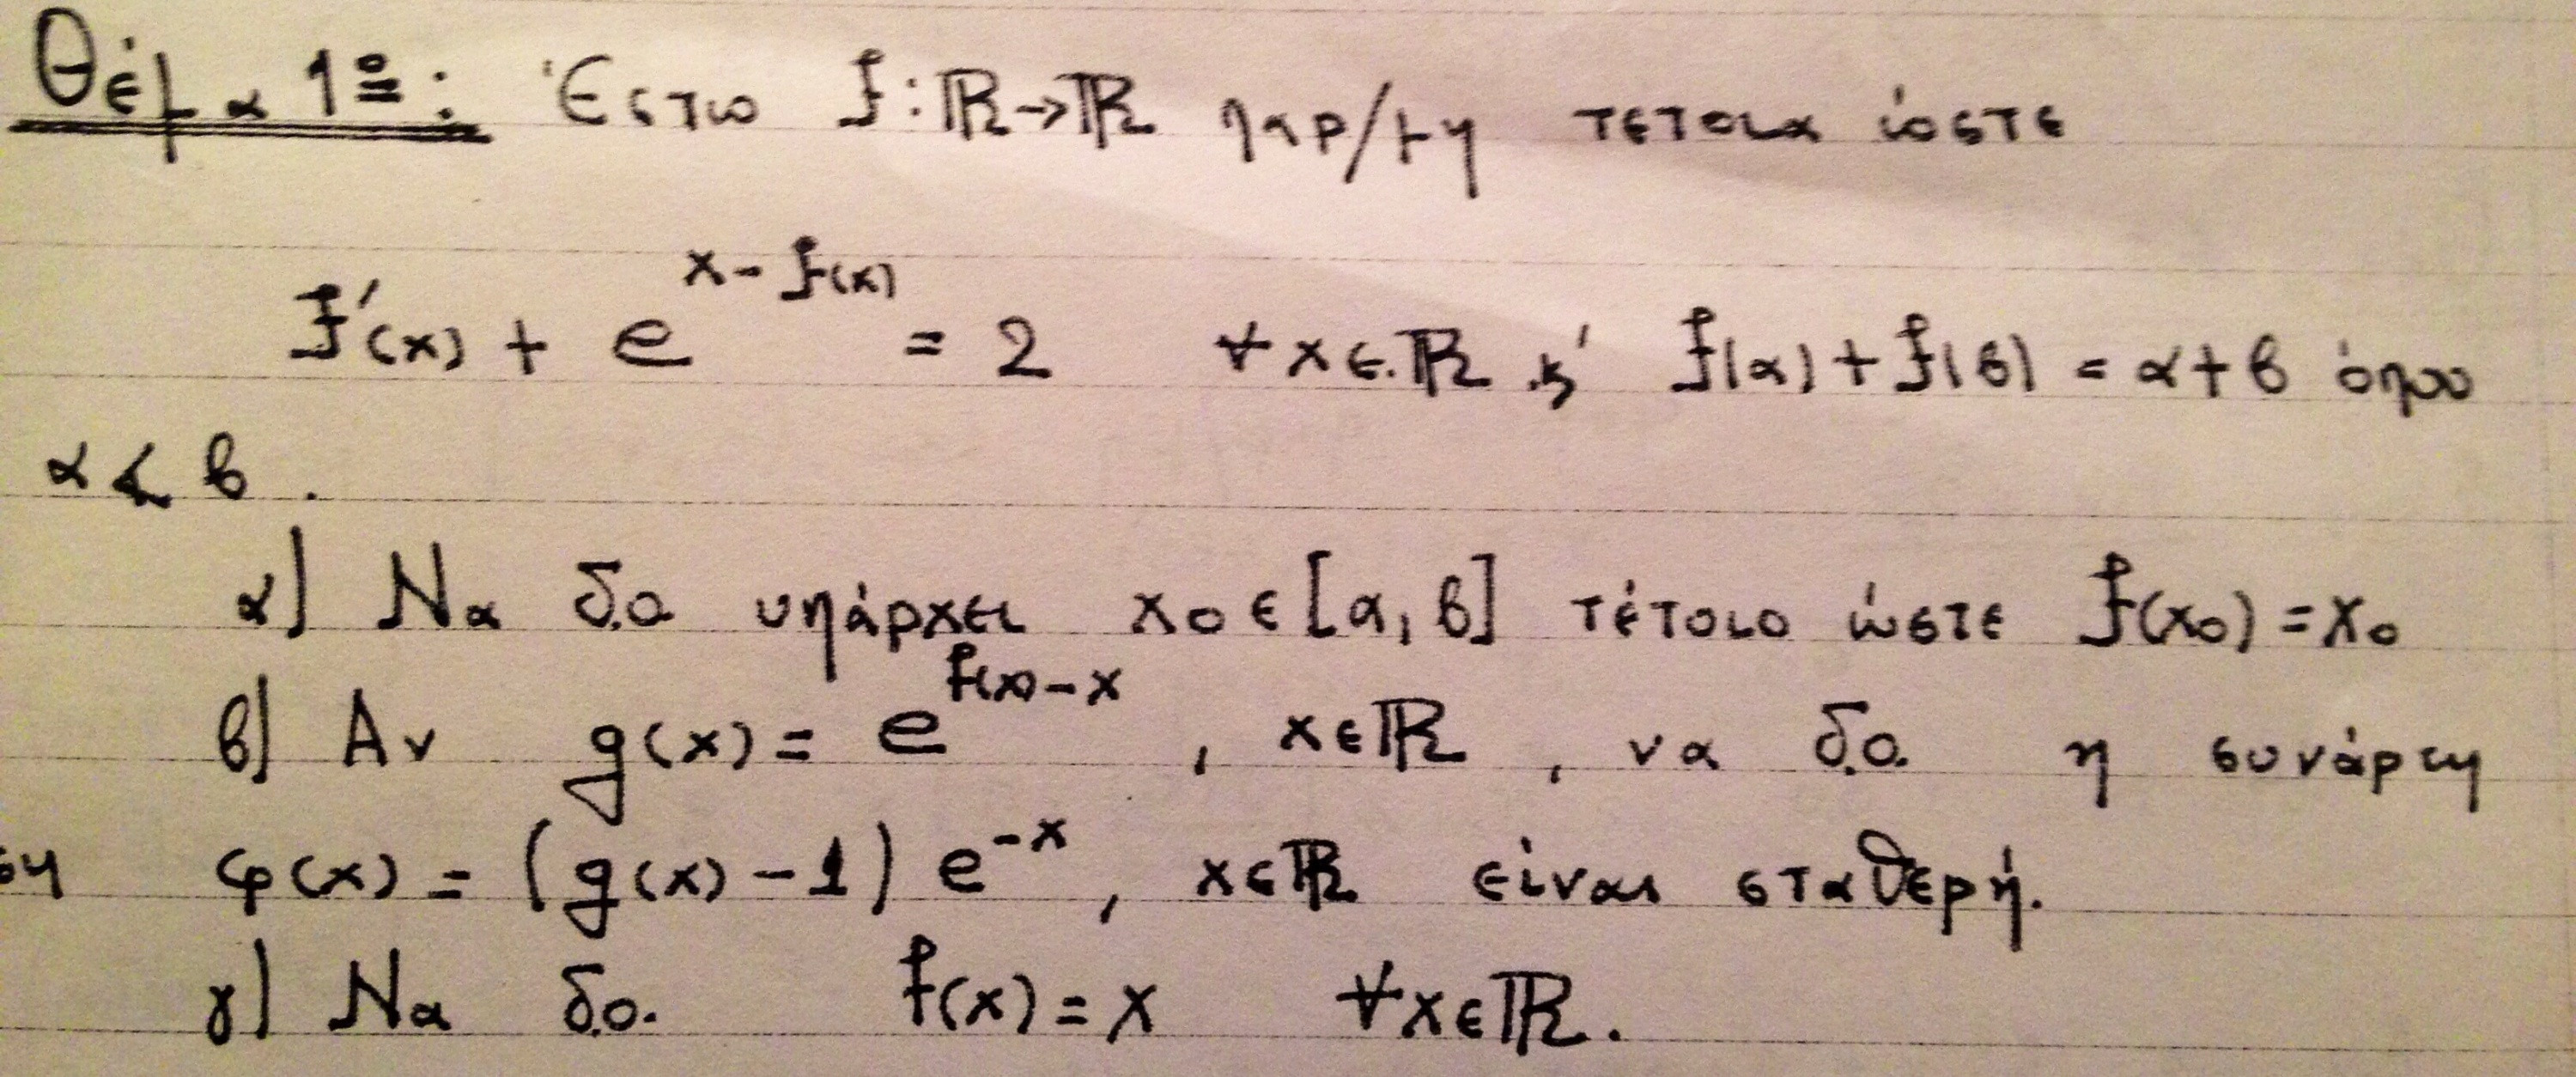 Θέμα 1º: Έστω f:ℝ→ℝ παρ/μη τετοια ώστε
f'(x) + e^{x-f(x)} = 2 ∀x∈ℝ κ' f(α)+f(β) = α+β όπου
α<β.
α) Να δ.ο υπάρχει x₀∈[α,β] τέτοιο ώστε f(x₀)=x₀
β) Αν g(x)= e^{f(x)-x}, x∈ℝ, να δ.ο. η συνάρτη
ση φ(x) = (g(x)-1) e^{-x}, x∈ℝ είναι σταθερή.
γ) Να δ.ο. f(x)=x ∀x∈ℝ.